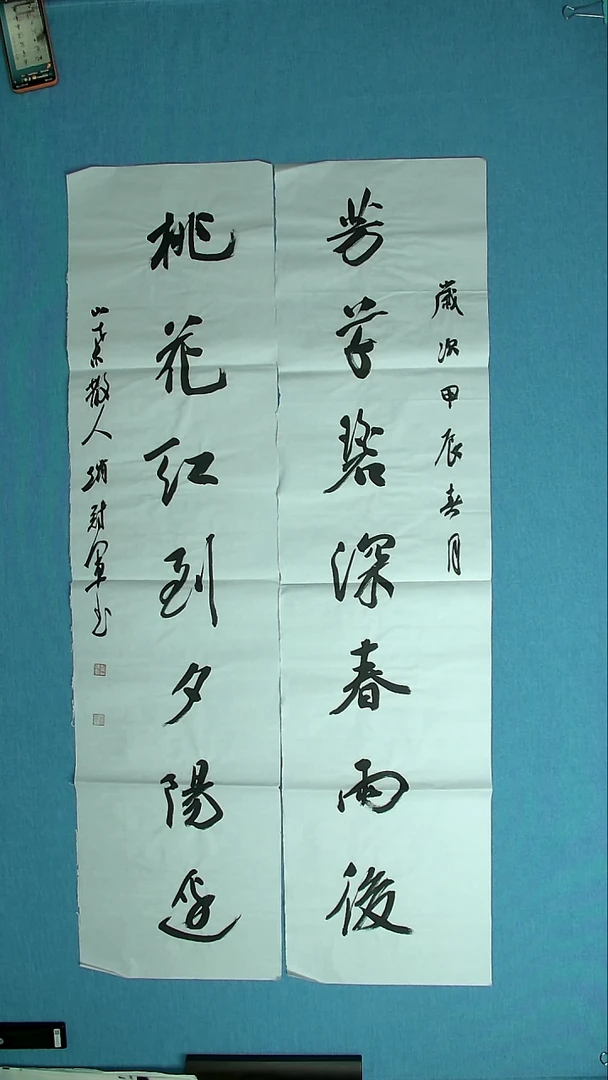 歲次甲辰春月
芳草碧深春雨後
桃花紅到夕陽邊
散人 軍書